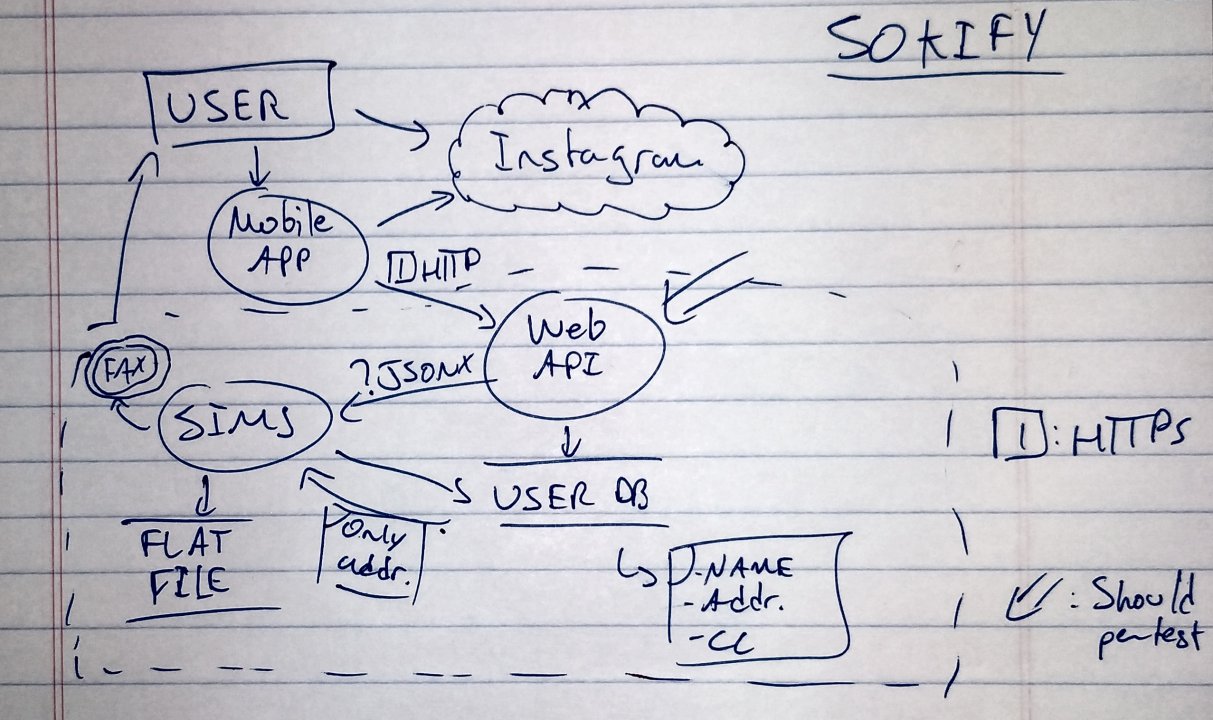 SOKIFY
USER
Instagram
Mobile
APP
1 HTTP
Web
API
?JSONX
FAX
SIMS
1 : HTTPS
USER DB
FLAT
FILE
Only
addr.
- NAME
- Addr.
- CC
: Should
pentest